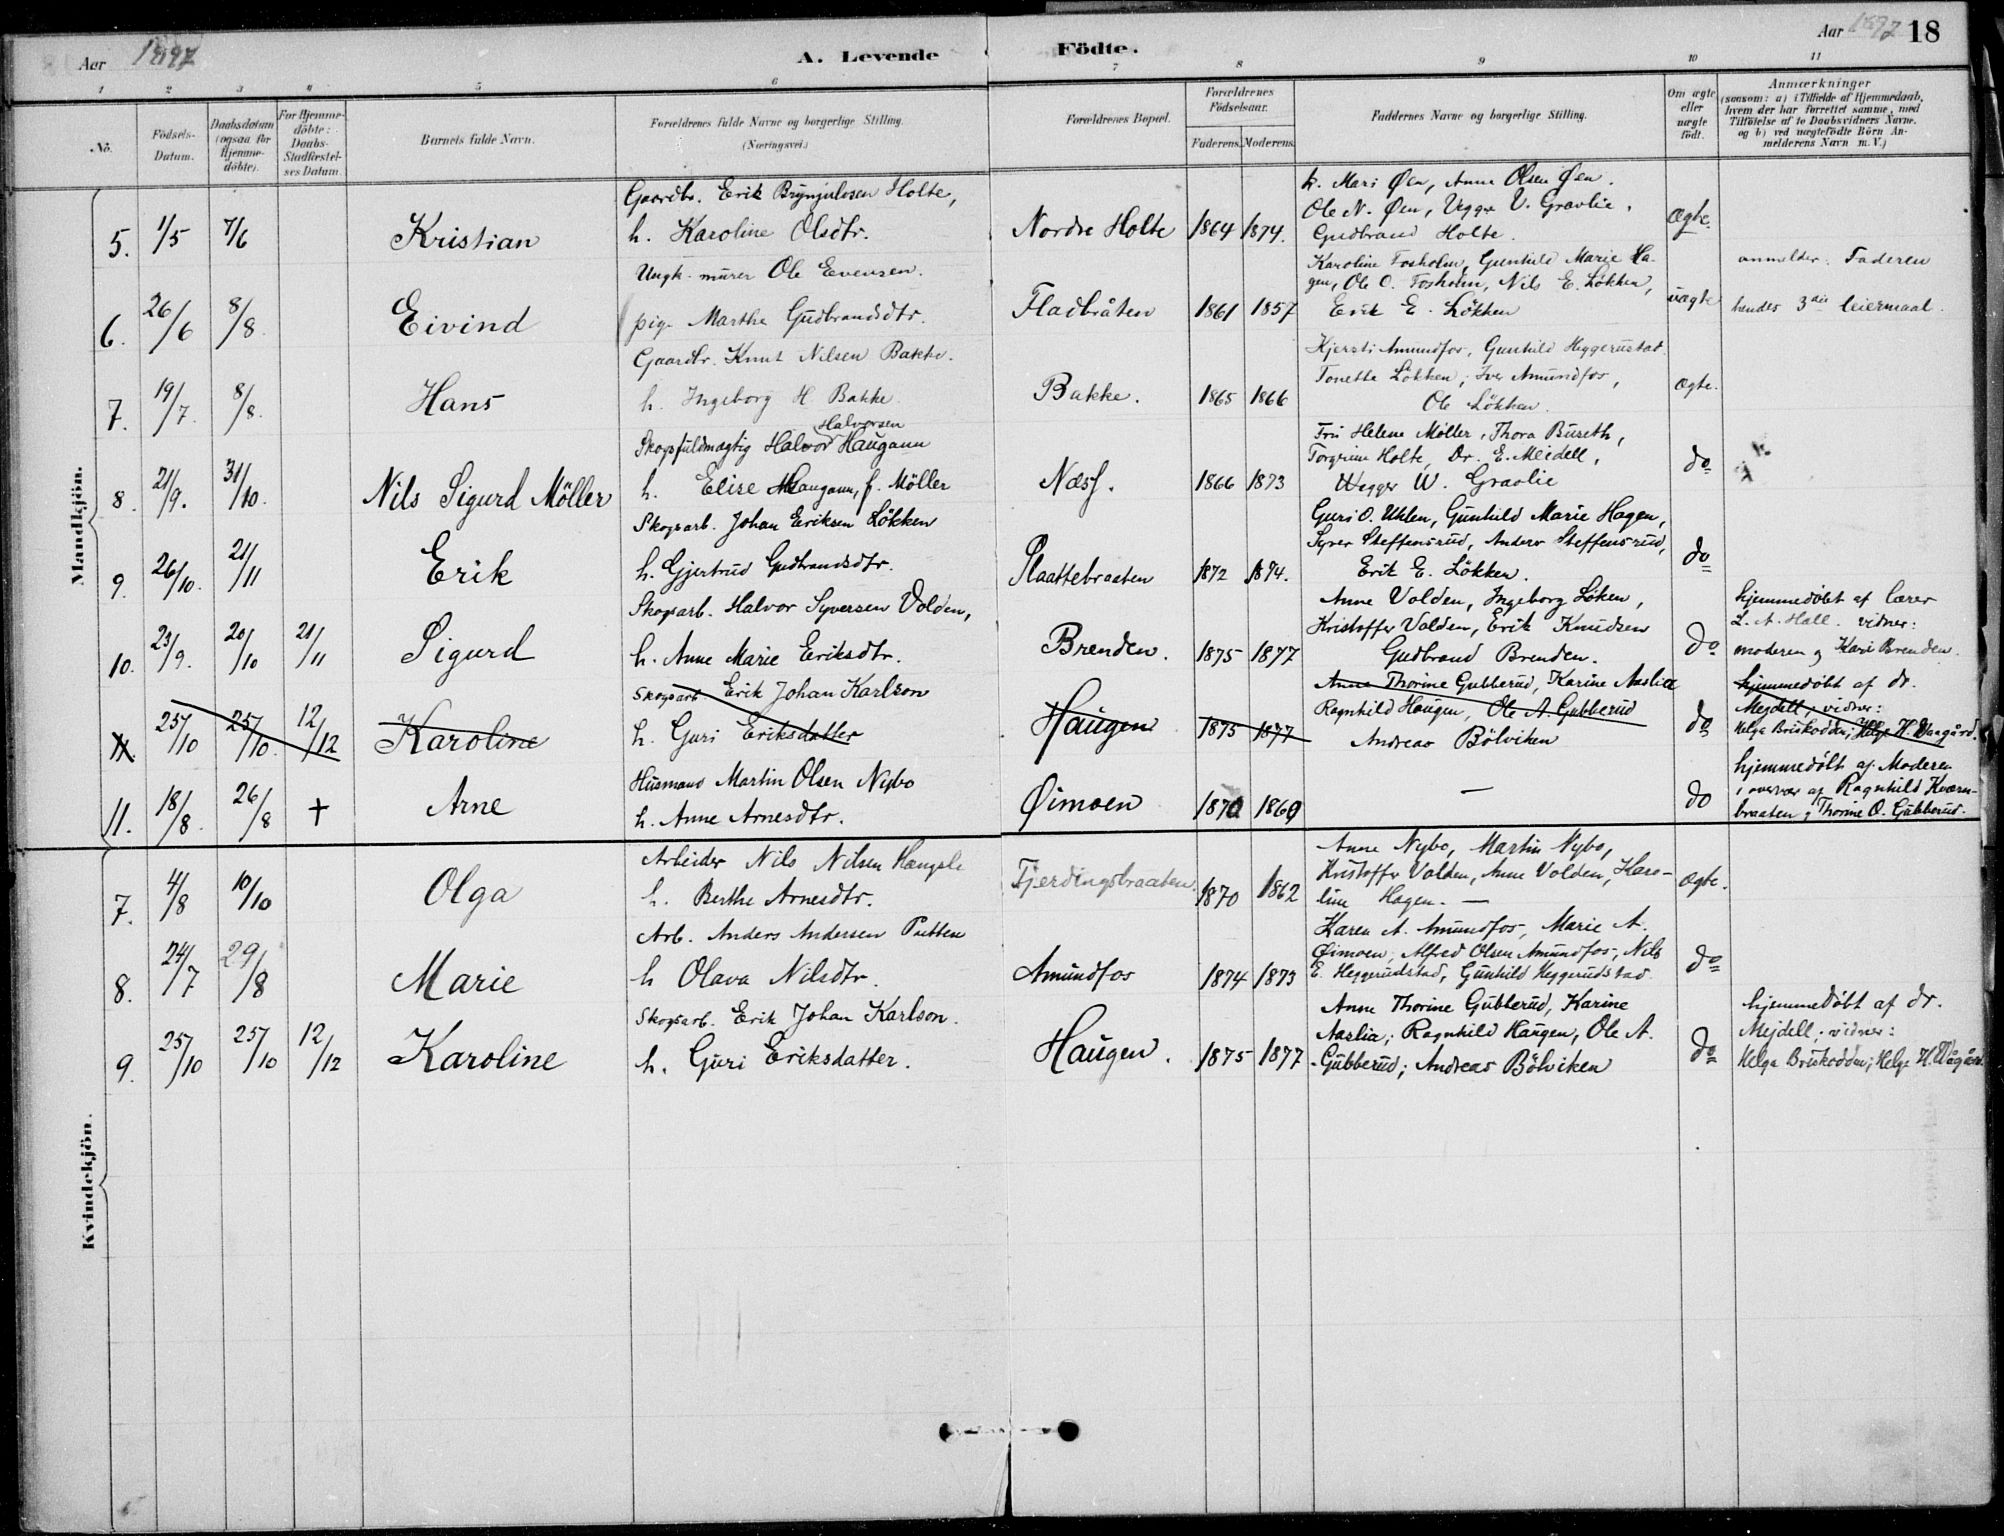 Aar 1897 A. Levende Födte. Aar 1897 18
1 2 3 4 5 6 7 8 9 10 11
No. Födsels-Datum. Daabsdatum (ogsaa for Hjemme-döbte). For Hjemme-döbte: Daabs-Stadfæstel-ses Datum. Barnets fulde Navn. Forældrenes fulde Navne og borgerlige Stilling. (Næringsvei.) Forældrenes Bopæl. Forældrenes Födselsaar. Faderens. Moderens. Faddernes Navne og borgerlige Stilling. Om ægte eller uægte födt. Anmærkninger (saasom: a) i Tilfælde af Hjemmedaab, hvem der har forrettet samme, med Tilföielse af to Daabsvidners Navne, og b) ved uægtefödte Börn An-melderens Navn m. V.)
Mandkjön.
Gaardbr. Erik Brynjulvsen Holte, h. Mari Øen, Anne Olsen Øen.
Ole N. Øen, Vegger V. Gravlie,
5. 1/5 7/6 Kristian h. Karoline Olsdtr. Nordre Holte 1864 1874. Gudbrand Holte. Ægte.
Ungk. murer Ole Evensen. Karoline Fosholm, Gunhild Marie Ha- anmelder: Faderen
gen, Ole O. Fosholm, Nils E. Løkken,
6. 26/6 8/8. Eivind pige Marthe Gudbrandsdtr. Fladbråten 1861 1857 Erik E. Løkken uægte hendes 3die leiermaal.
Gaardbr. Knut Nilsen Bakke. Kjersti Amundfos, Gunhild Heggerustad.
Tonette Løkken, Iver Amundfos,
7. 19/7. 8/8. Hans h. Ingeborg H. Bakke. Bakke. 1865 1866 Ole Løkken. ægte.
Halvorsen
Skogsfuldmægtig Halvor Haugann Fru Helene Møller, Thora Buseth,
Torgrim Holte, Dr. E. Meidell,
8. 21/9. 31/10. Nils Sigurd Möller h. Elise Haugann, f. Möller Næss. 1866 1873 Wegger W. Gravlie do
Skogsarb. Johan Eriksen Løkken Guri O. Uhlen, Gunhild Marie Hagen,
Syver Steffensrud, Anders Steffensrud,
9. 26/10. 21/11 Erik h. Gjertrud Gudbrandsdtr. Plaattebraaten 1872 1874. Erik E. Løkken. do
Skogsarb. Halvor Syversen Volden, Anne Volden, Ingeborg Løken, hjemmedøbt af lærer
Kristoffer Volden, Erik Knudsen L. A. Hall. vidner:
10. 23/9. 20/10 21/11 Sigurd h. Anne Marie Eriksdtr. Brenden. 1875 1877 Gudbrand Brenden. do moderen og Kari Brenden.
Skogsarb Erik Johan Karlson Anne Thorine Gubberud, Karine Aaslia hjemmedøbt af dr.
Ragnhild Haugen, Ole A. Gubberud Mejdell; vidner:
11 25/10 25/10. 12/12 Karoline h. Guri Eriksdatter Haugen 1875 1877 Andreas Bölviken do Helga Briskodden; Helge H. Waagård.
Husmand Martin Olsen Nybo hjemmedöbt af Moderen
i overvær af Ragnhild Kværn-
11. 18/8. 26/8 + Arne h. Anne Arnesdtr. Øimoen 1870 1869 — do braaten, Thorine O. Gubberud.
Kvindekjön.
Arbeider Nils Nilsen Hængsle Anne Nybo, Martin Nybo,
Kristoffer Volden, Anne Volden, Karo-
7. 4/8 10/10 Olga h. Berthe Arnesdtr. Fjerdingsbraaten. 1870 1862 line Hagen. — ægte.
Arb. Anders Andersen Putten Karen A. Amundfos, Marie A.
Øimoen, Alfred Olsen Amundfos, Nils
8. 24/7 29/8 Marie h Olava Nilsdtr. Amundfos 1874 1873 E. Heggerudstad, Gunhild Heggerudstad. do
Skogsarb. Erik Johan Karlson. Anne Thorine Gubberud, Karine hjemmedöbt af dr.
Aaslia; Ragnhild Haugen, Ole A. Mejdell; vidner:
9. 25/10 25/10 12/12 Karoline h. Guri Eriksdatter. Haugen. 1875 1877 Gubberud; Andreas Bölviken do Helga Briskodden; Helge H. Wågård.